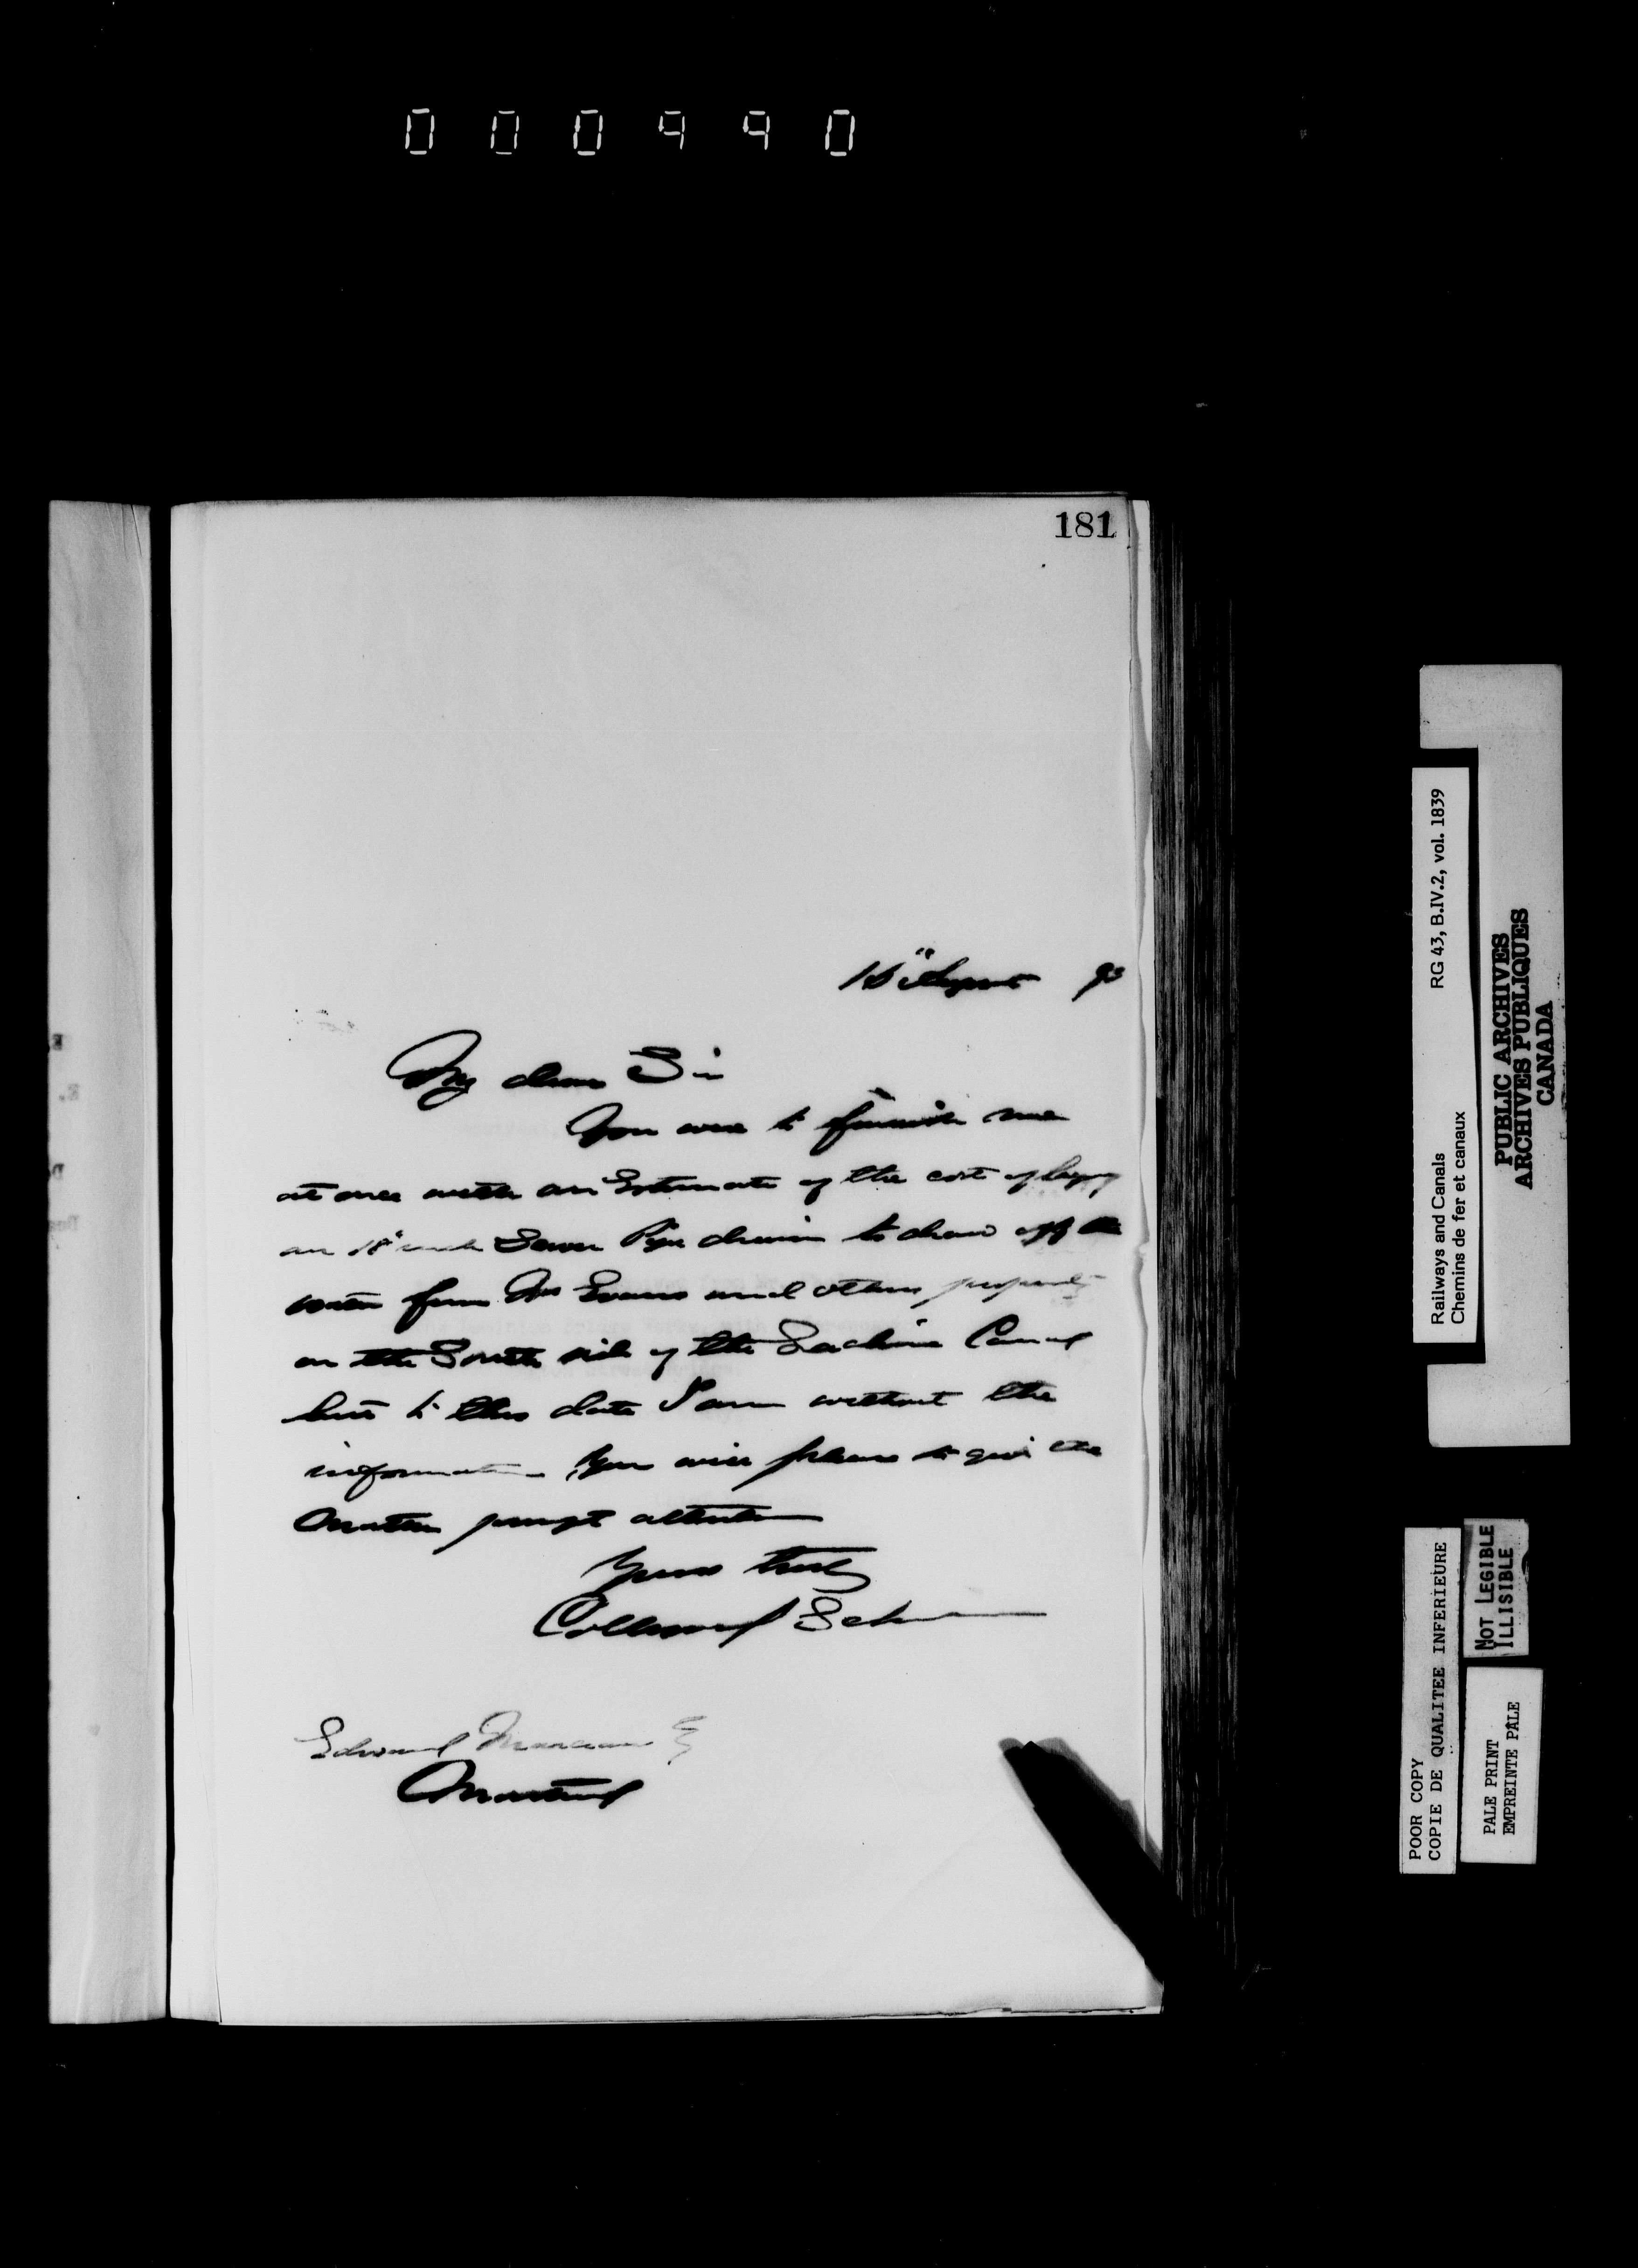 000440
181
August 93
My dear Sir
You were to furnish me
at once with an Estimate of the cost of laying
an 18" inch Sewer Pipe drain to draw off the
water from Mr Evans and others property
on the South side of the Lachine Canal
but to this date I am without the
information You will please to give the
matter prompt attention
Yours truly
Collingwood Schreiber
Edward Marceau E
Montreal
Railways and Canals RG 43, B.IV.2, vol. 1839
Chemins de fer et canaux
PUBLIC ARCHIVES
ARCHIVES PUBLIQUES
CANADA
POOR COPY
COPIE DE QUALITEE INFERIEURE
NOT LEGIBLE
ILLISIBLE
PALE PRINT
EMPREINTE PÂLE